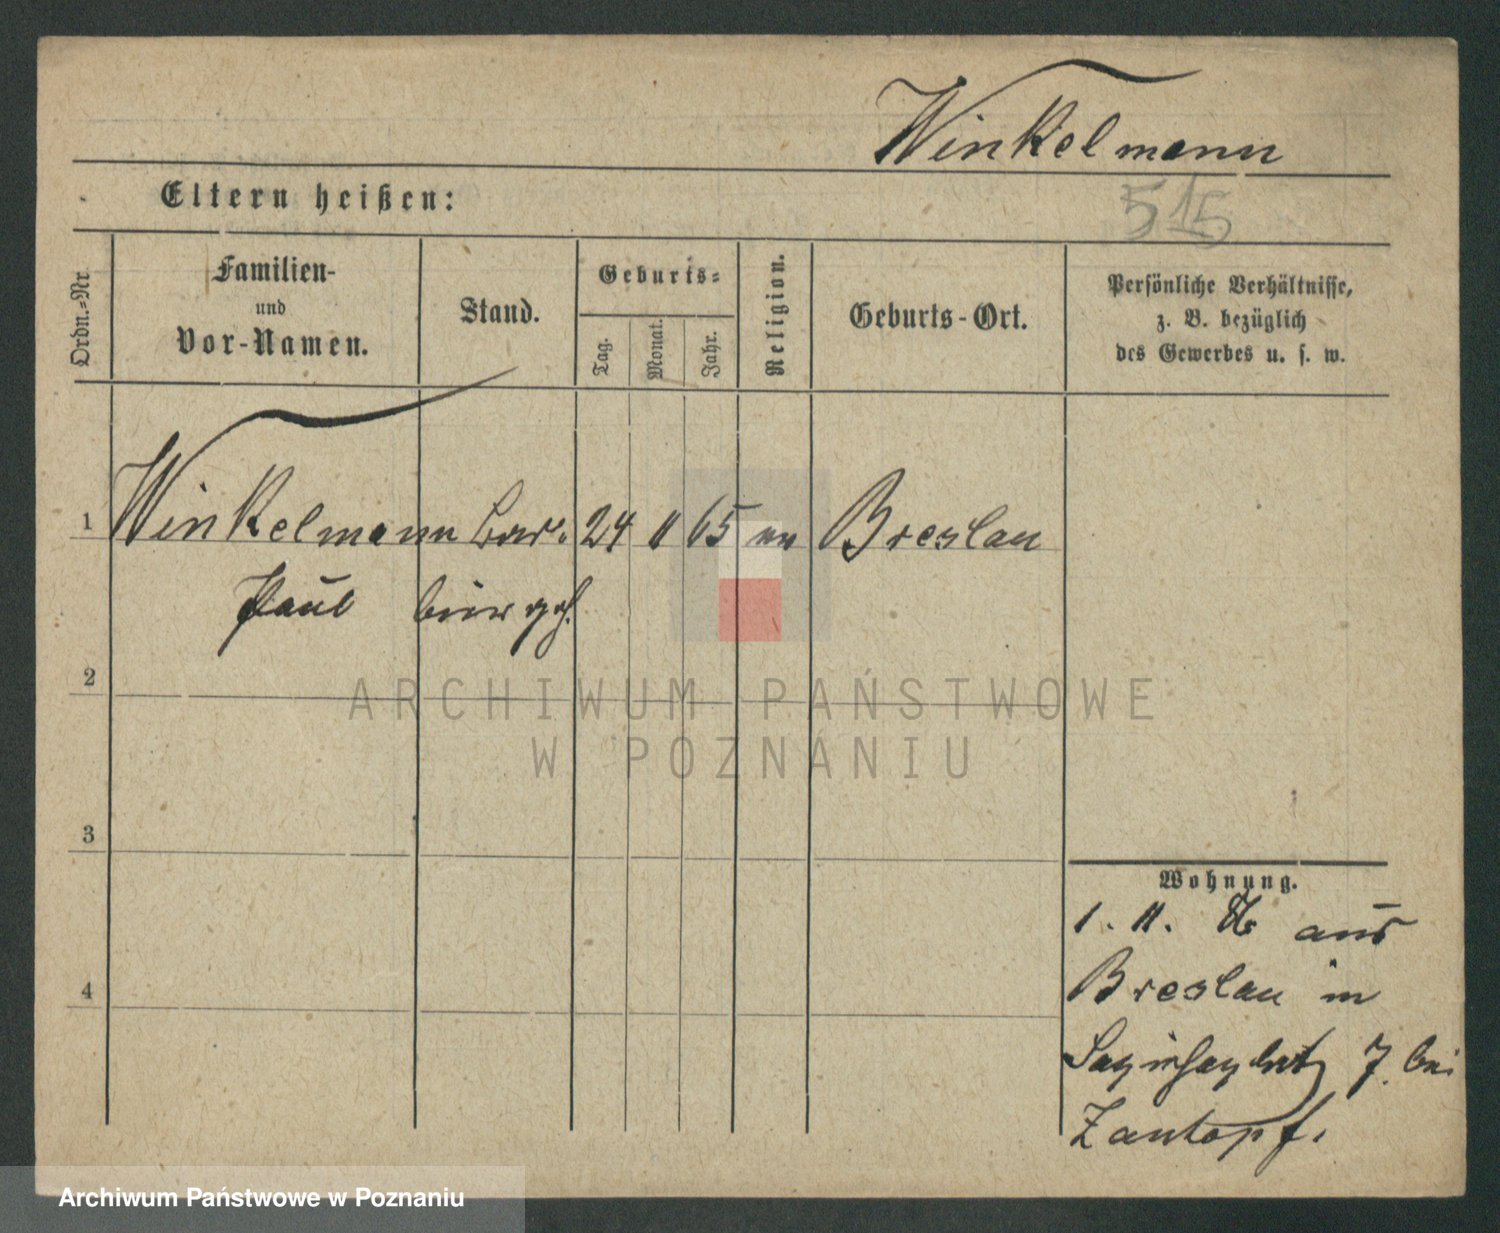 Winkelmann
Eltern heißen:
515
Ordn.-Nr.
Familien-
und
Vor-Namen.
Stand.
Geburts-
Tag.
Monat.
Jahr.
Religion.
Geburts-Ort.
Persönliche Verhältnisse,
z. B. bezüglich
des Gewerbes u. s. w.
1
Winkelmann Bar. 24 11 65 Breslau
Paul
2
3
4
Wohnung.
1. 11. 86 aus
Breslau in
Sapiehaplatz 7. bei
Zantopf.
ARCHIWUM PAŃSTWOWE
W POZNANIU
Archiwum Państwowe w Poznaniu